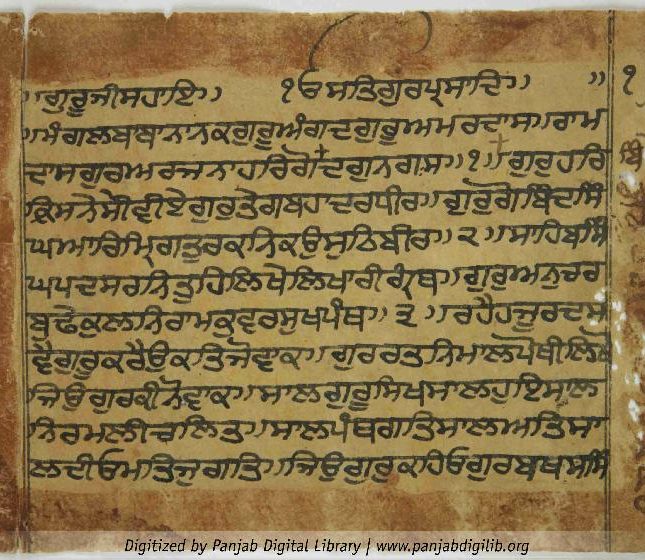 ॥ਗੁਰੂਜੀਸਹਾਇ॥ ੧ਓ ਸਤਿਗੁਰਪ੍ਰਸਾਦਿ॥ ॥ ੧
॥ਮੰਗਲਬਾਬਾਨਾਨਕਗੁਰੂਅੰਗਦਗੁਰੂਅਮਰਦਾਸ॥ਰਾਮ
ਦਾਸਗੁਰਅਰਜਨਾਹਰਿਗੋ+ਦਗੁਨਗਸ॥੧॥ਗੁਰੁਹਰਿ
ਕ੍ਰਿਸਨੇਸੇਵੀਏਗੁਰੁਤੇਗਬਹਾਦਰਧੀਰ॥ਗੁਰੁਗੋਬਿੰਦਸਿੰ
ਘਮਾਰਿਮ੍ਰਿਗਤੁਰਕਨਿਕਉਸੁਠਿਬੀਰ॥੨॥ਸਾਹਿਬਸਿੰ
ਘਪਦਸਰਨਿਤੁਹਿਲਿਖੋਲਿਖਾਰੀਗ੍ਰੰਥ॥ਗੁਰੁਅਨੁਚਰ
ਬਢੈਕੁਲਨਿਰਾਮਕੁਵਰਸੁਖਪੰਥ॥੩॥ਰਹੈਹਜੂਰਦਾਸ
ਵੈਗੁਰੂਕਰੈਉਕਤਿਜੋਵਾਕ॥ਗੁਰਰਤਨਿਮਾਲਪੋਥੀਲਿਖੋ
ਜਿਉਗੁਰਕੀਨੋਵਾਕ॥ਸਾਲਗੁਰੂਸਿਖਸਾਲਹੁਇਸਾਲ
ਨਿਰਮਲੀਚਾਲਿਤ॥ਸਾਲਪੰਥਗਤਿਸਾਲਮਤਿਸਾ
ਲਦੀਓਮਤਿਜੁਗਤਿ॥ਜਿਉਗੁਰੁਕਹਿਓਗੁਰਬਖਸਸਿੰ
Digitized by Panjab Digital Library | www.panjabdigilib.org